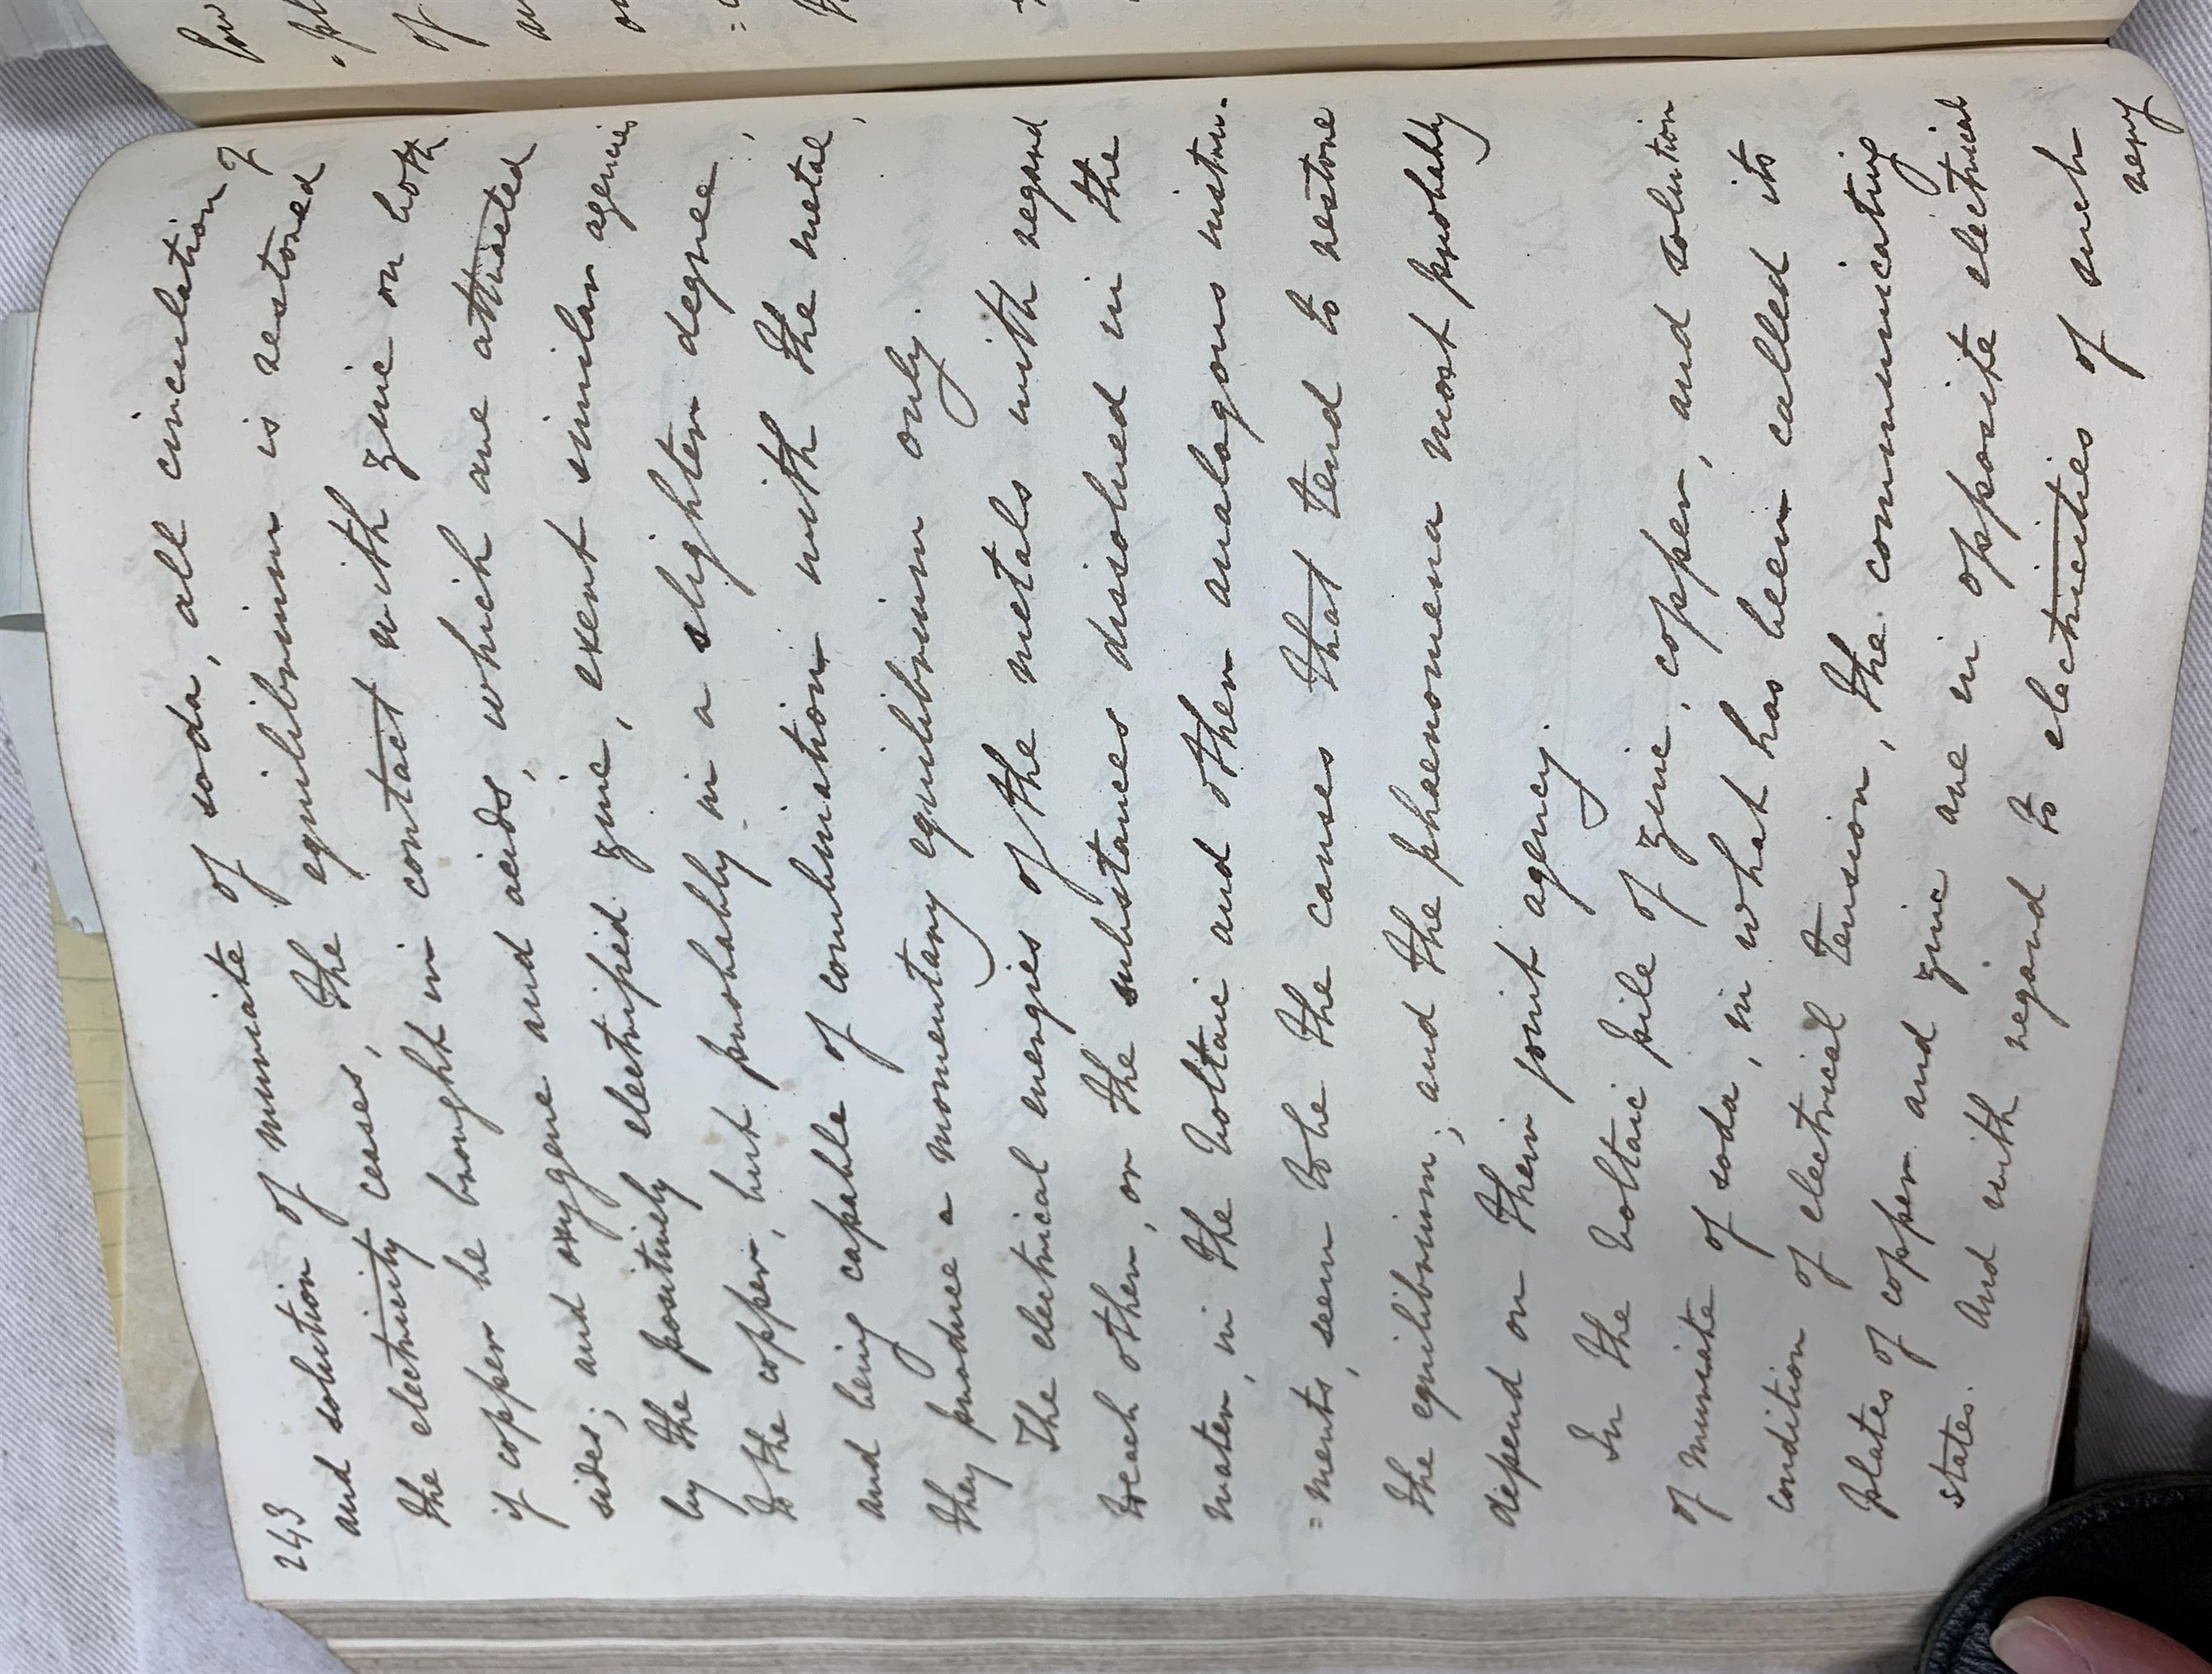 243
and solution of muriate of soda, all circulation of
the electricity ceases, the equilibrium is restored
if copper be brought in contact with zinc on both
sides; and oxygene and acids, which are attracted
by the positively electrified zinc, exert similar agencies
to the copper, but probably in a slighter degree;
and being capable of combination with the metal,
they produce a momentary equilibrium only.
The electrical energies of the metals with regard
to each other, or the substances disolved in the
water, in the Voltaic and other analogous instru-
=ments, seem to be the causes that tend to restore
the equilibrium; and the phaenomena most probably
depend on their joint agency.
In the Voltaic pile of zinc, copper, and solution
of muriate of soda, in what has been called its
condition of electrical tension, the communicating
plates of copper and zinc are in opposite electrical
states. And with regard to electricities of such
very
of